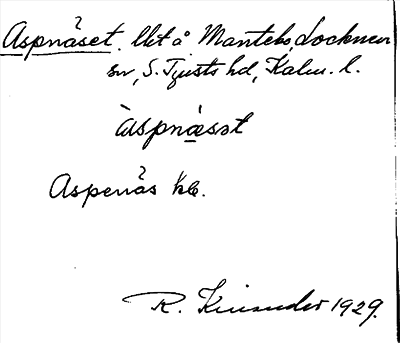 Aspnäset, llit å Mantebo, Lockneva
sn, S. Tjusts hd, Kalm. l.
àspnæsət
Aspenäs kb.
R. Kinander 1929.